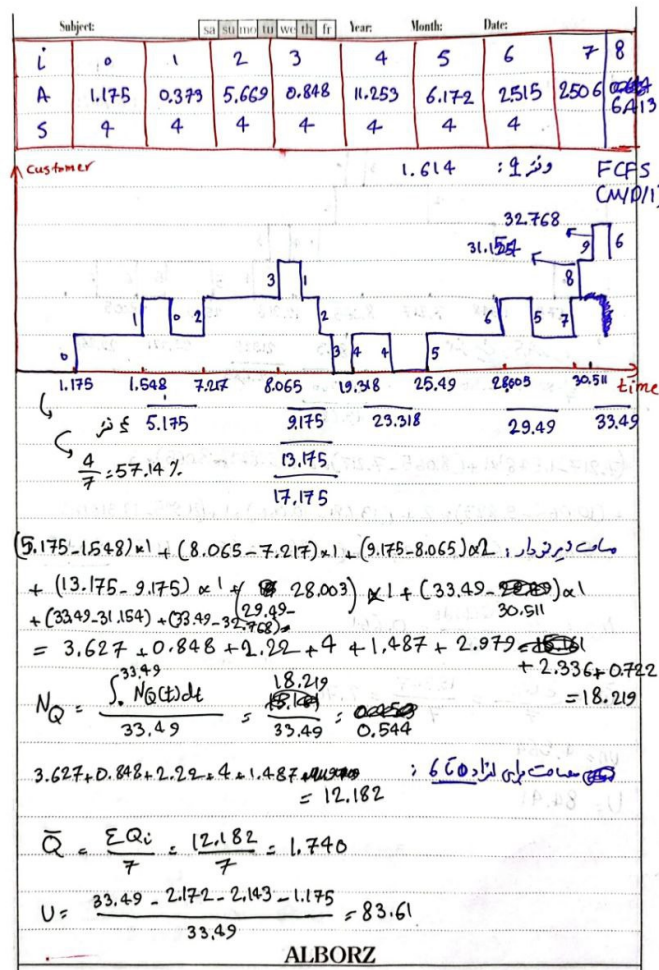 Subject: sa su mo tu we th fr Year: Month: Date:
i 0 1 2 3 4 5 6 7 8
A 1.175 0.373 5.669 0.848 11.253 6.172 2.515 2.506 6.413
S 4 4 4 4 4 4 4
Customer 1.614 : 9 نفر FCFS
(M/D/1)
32.768
31.154
9 6
3 1 8
1 0 2 2 6 5 7
0 3 4 4 5
1.175 1.548 7.217 8.065 19.318 25.49 28.003 30.511 time
5.175 9.175 23.318 29.49 33.49
4/7 = 57.14% 13.175
17.175
(5.175-1.548)×1 + (8.065-7.217)×1 + (9.175-8.065)×2 :
+ (13.175-9.175)×1 + (29.49-28.003)×1 + (33.49-30.511)×1
+ (33.49-31.154) + (33.49-32.768) =
= 3.627 + 0.848 + 2.22 + 4 + 1.487 + 2.979
+ 2.336 + 0.722
= 18.219
N_Q = ∫₀^33.49 N_Q(t)dt / 33.49 = 18.219 / 33.49 = 0.544
مساحت برای افراد 0 تا 6 :
3.627 + 0.848 + 2.22 + 4 + 1.487
= 12.182
Q̄ = ΣQi / 7 = 12.182 / 7 = 1.740
U = 33.49 - 2.172 - 2.143 - 1.175 / 33.49 = 83.61
ALBORZ